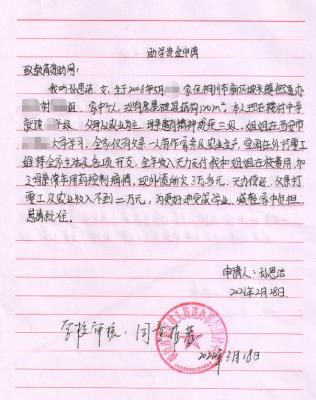 助学资金申请
致教育资助网:
我叫孙思洁,女,生于2008年5月 家住铜川市新区坡头街道办
村 组,家中4人,现有房屋砖混结构120m²。本人现在 中学
就读 年级,父母以农业为主,母亲患有精神残疾二级,姐姐在西安市
大学学习,全家仅有父亲一人劳作家务及农业生产,空闲在外打零工
维持全家生活及各项开支。全年收入无力支付我和姐姐在校费用,加
之母亲常年用药控制病情,现外债所欠3万多元,无力偿还,父亲打
零工及农业收入不到二万元,为更好地完成学业,减轻家中负担,
恳请批准。
申请人:孙思洁
2024年2月28日
学校审核:同意推荐
2024年3月18日